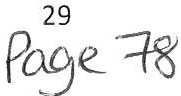 29
Page 78